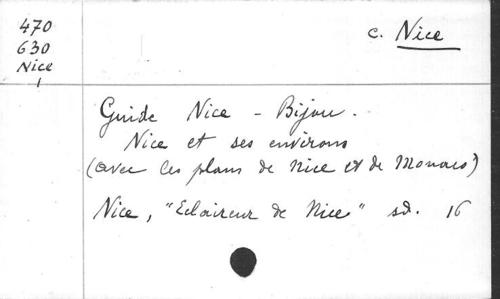 470
630
Nice
1
c. Nice
Guide Nice - Bijou.
Nice et ses environs
(avec les plans de Nice et de Monaco)
Nice, "Eclaireur de Nice" sd. 16